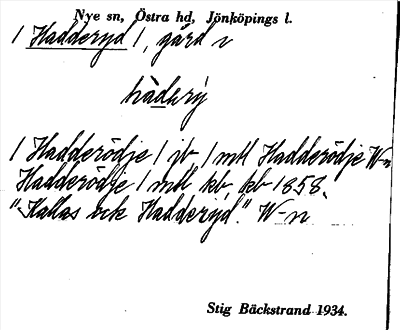 Nye sn, Östra hd, Jönköpings l.
/ Hadderyd /, gård
hàdery
/ Hadderödje / jb, / mtl Hadderödje W-n
Hadderödje / mtl kb, kb 1858.
"Kallas ock Hadderyd." W-n
Stig Bäckstrand 1934.